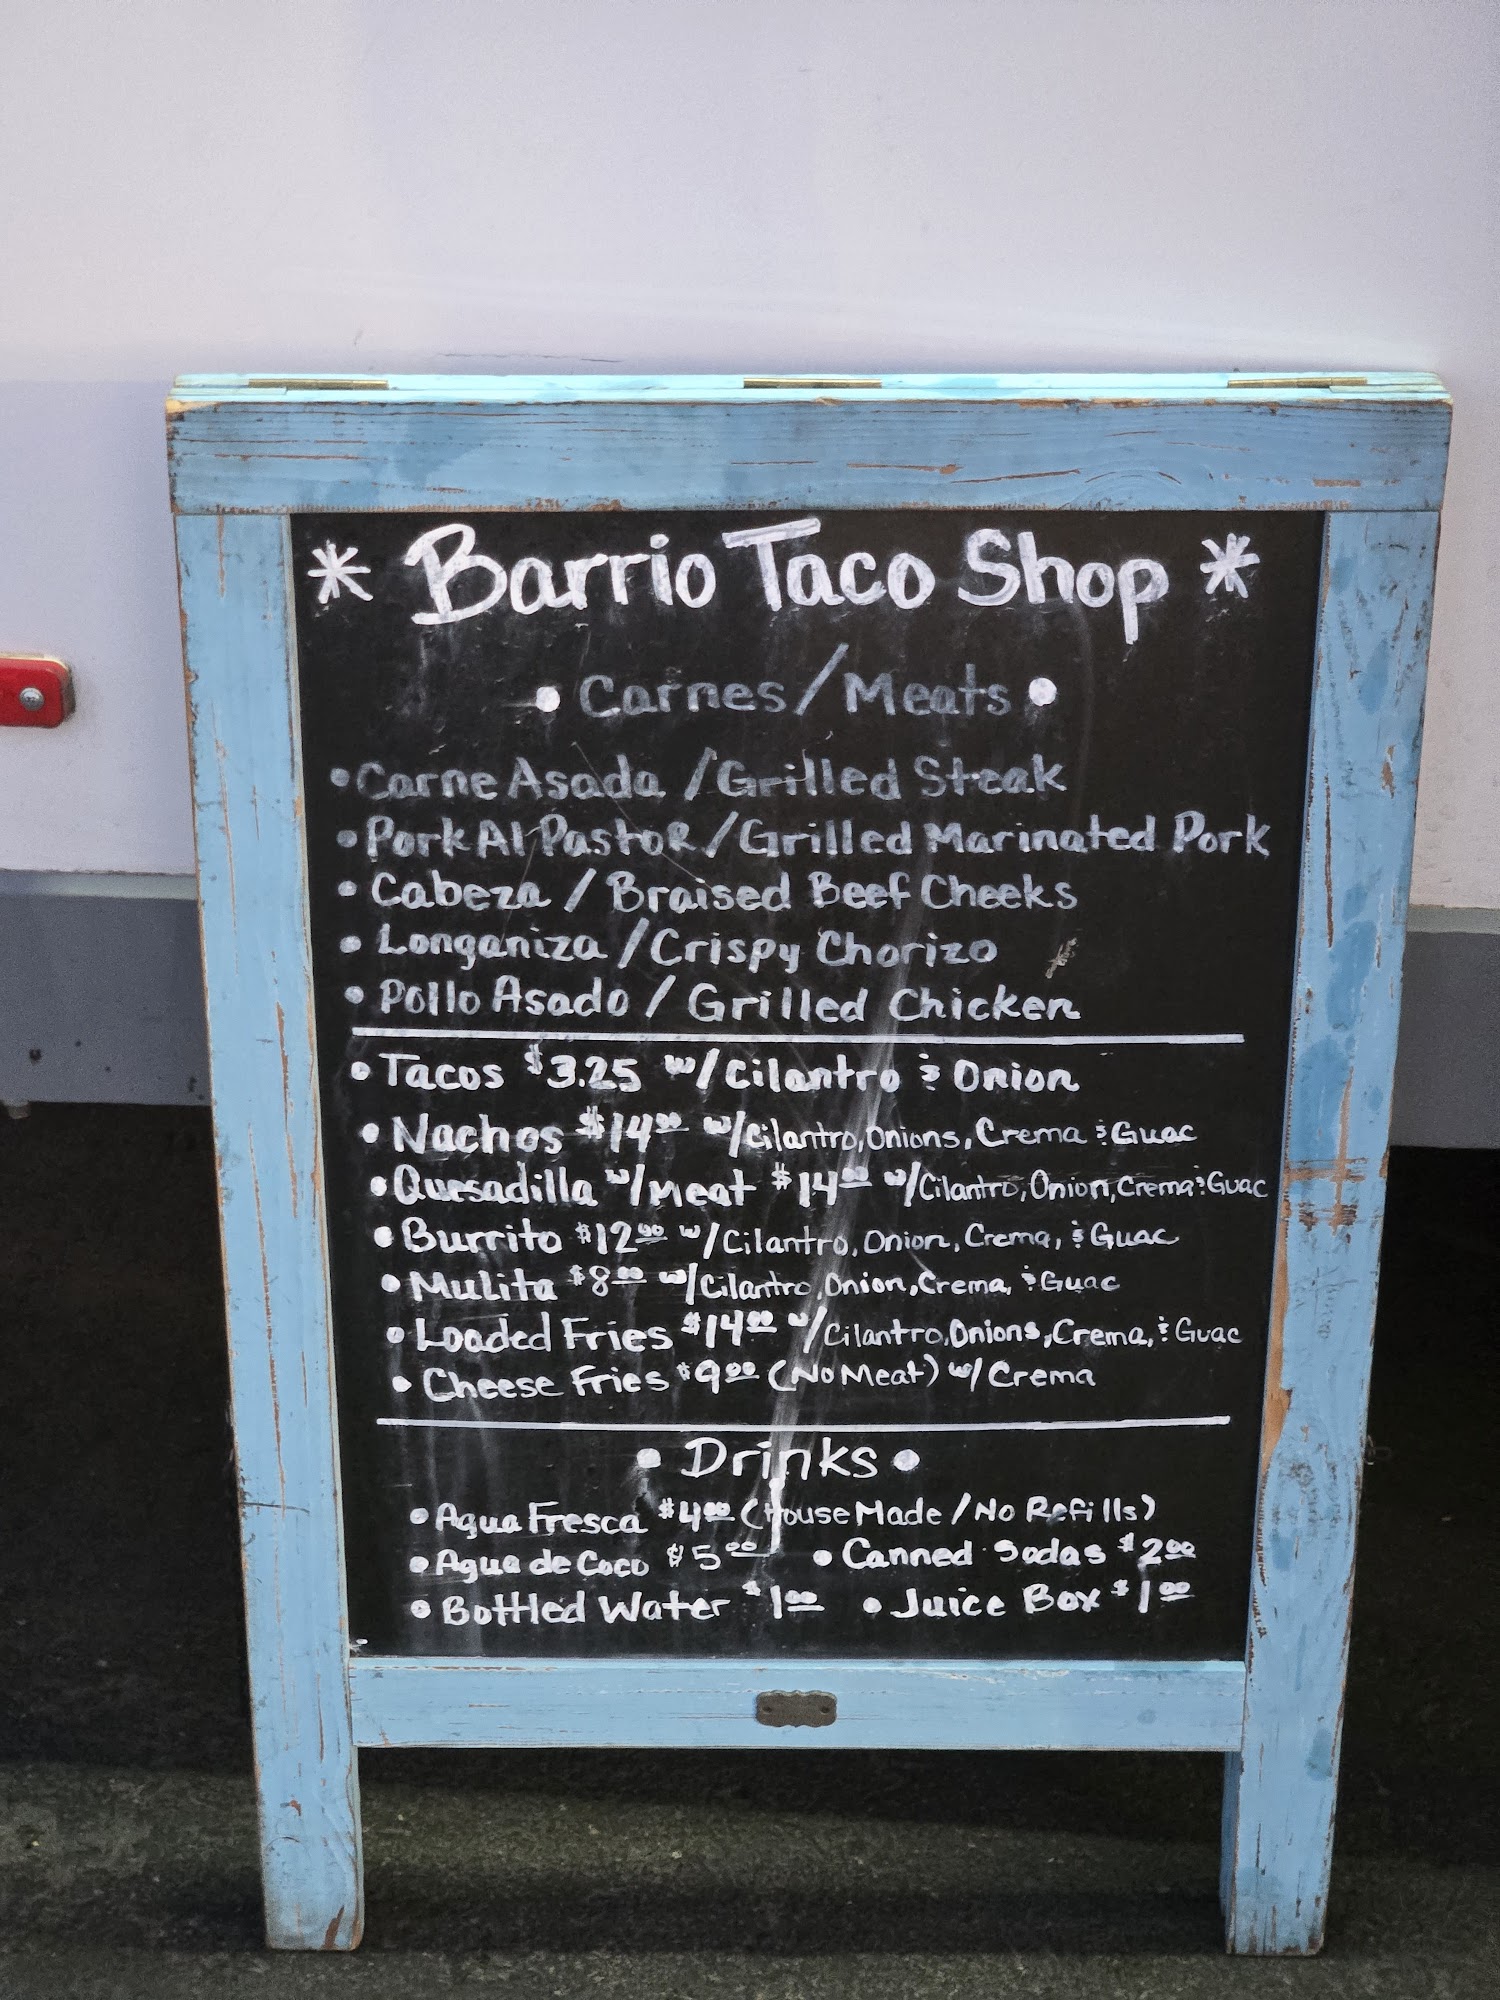 * Barrio Taco Shop *
• Carnes/Meats •
• Carne Asada / Grilled Steak
• Pork Al Pastor / Grilled Marinated Pork
• Cabeza / Braised Beef Cheeks
• Longaniza / Crispy Chorizo
• Pollo Asado / Grilled Chicken
• Tacos $3.25 w/ Cilantro & Onion
• Nachos $14.00 w/ Cilantro, Onions, Crema & Guac
• Quesadilla w/ Meat $14.00 w/ Cilantro, Onion, Crema & Guac
• Burrito $12.00 w/ Cilantro, Onion, Crema, & Guac
• Mulita $8.00 w/ Cilantro, Onion, Crema, & Guac
• Loaded Fries $14.00 w/ Cilantro, Onions, Crema, & Guac
• Cheese Fries $9.00 (No Meat) w/ Crema
• Drinks •
• Agua Fresca $4.00 (House Made / No Refills)
• Agua de Coco $5.00 • Canned Sodas $2.00
• Bottled Water $1.00 • Juice Box $1.00